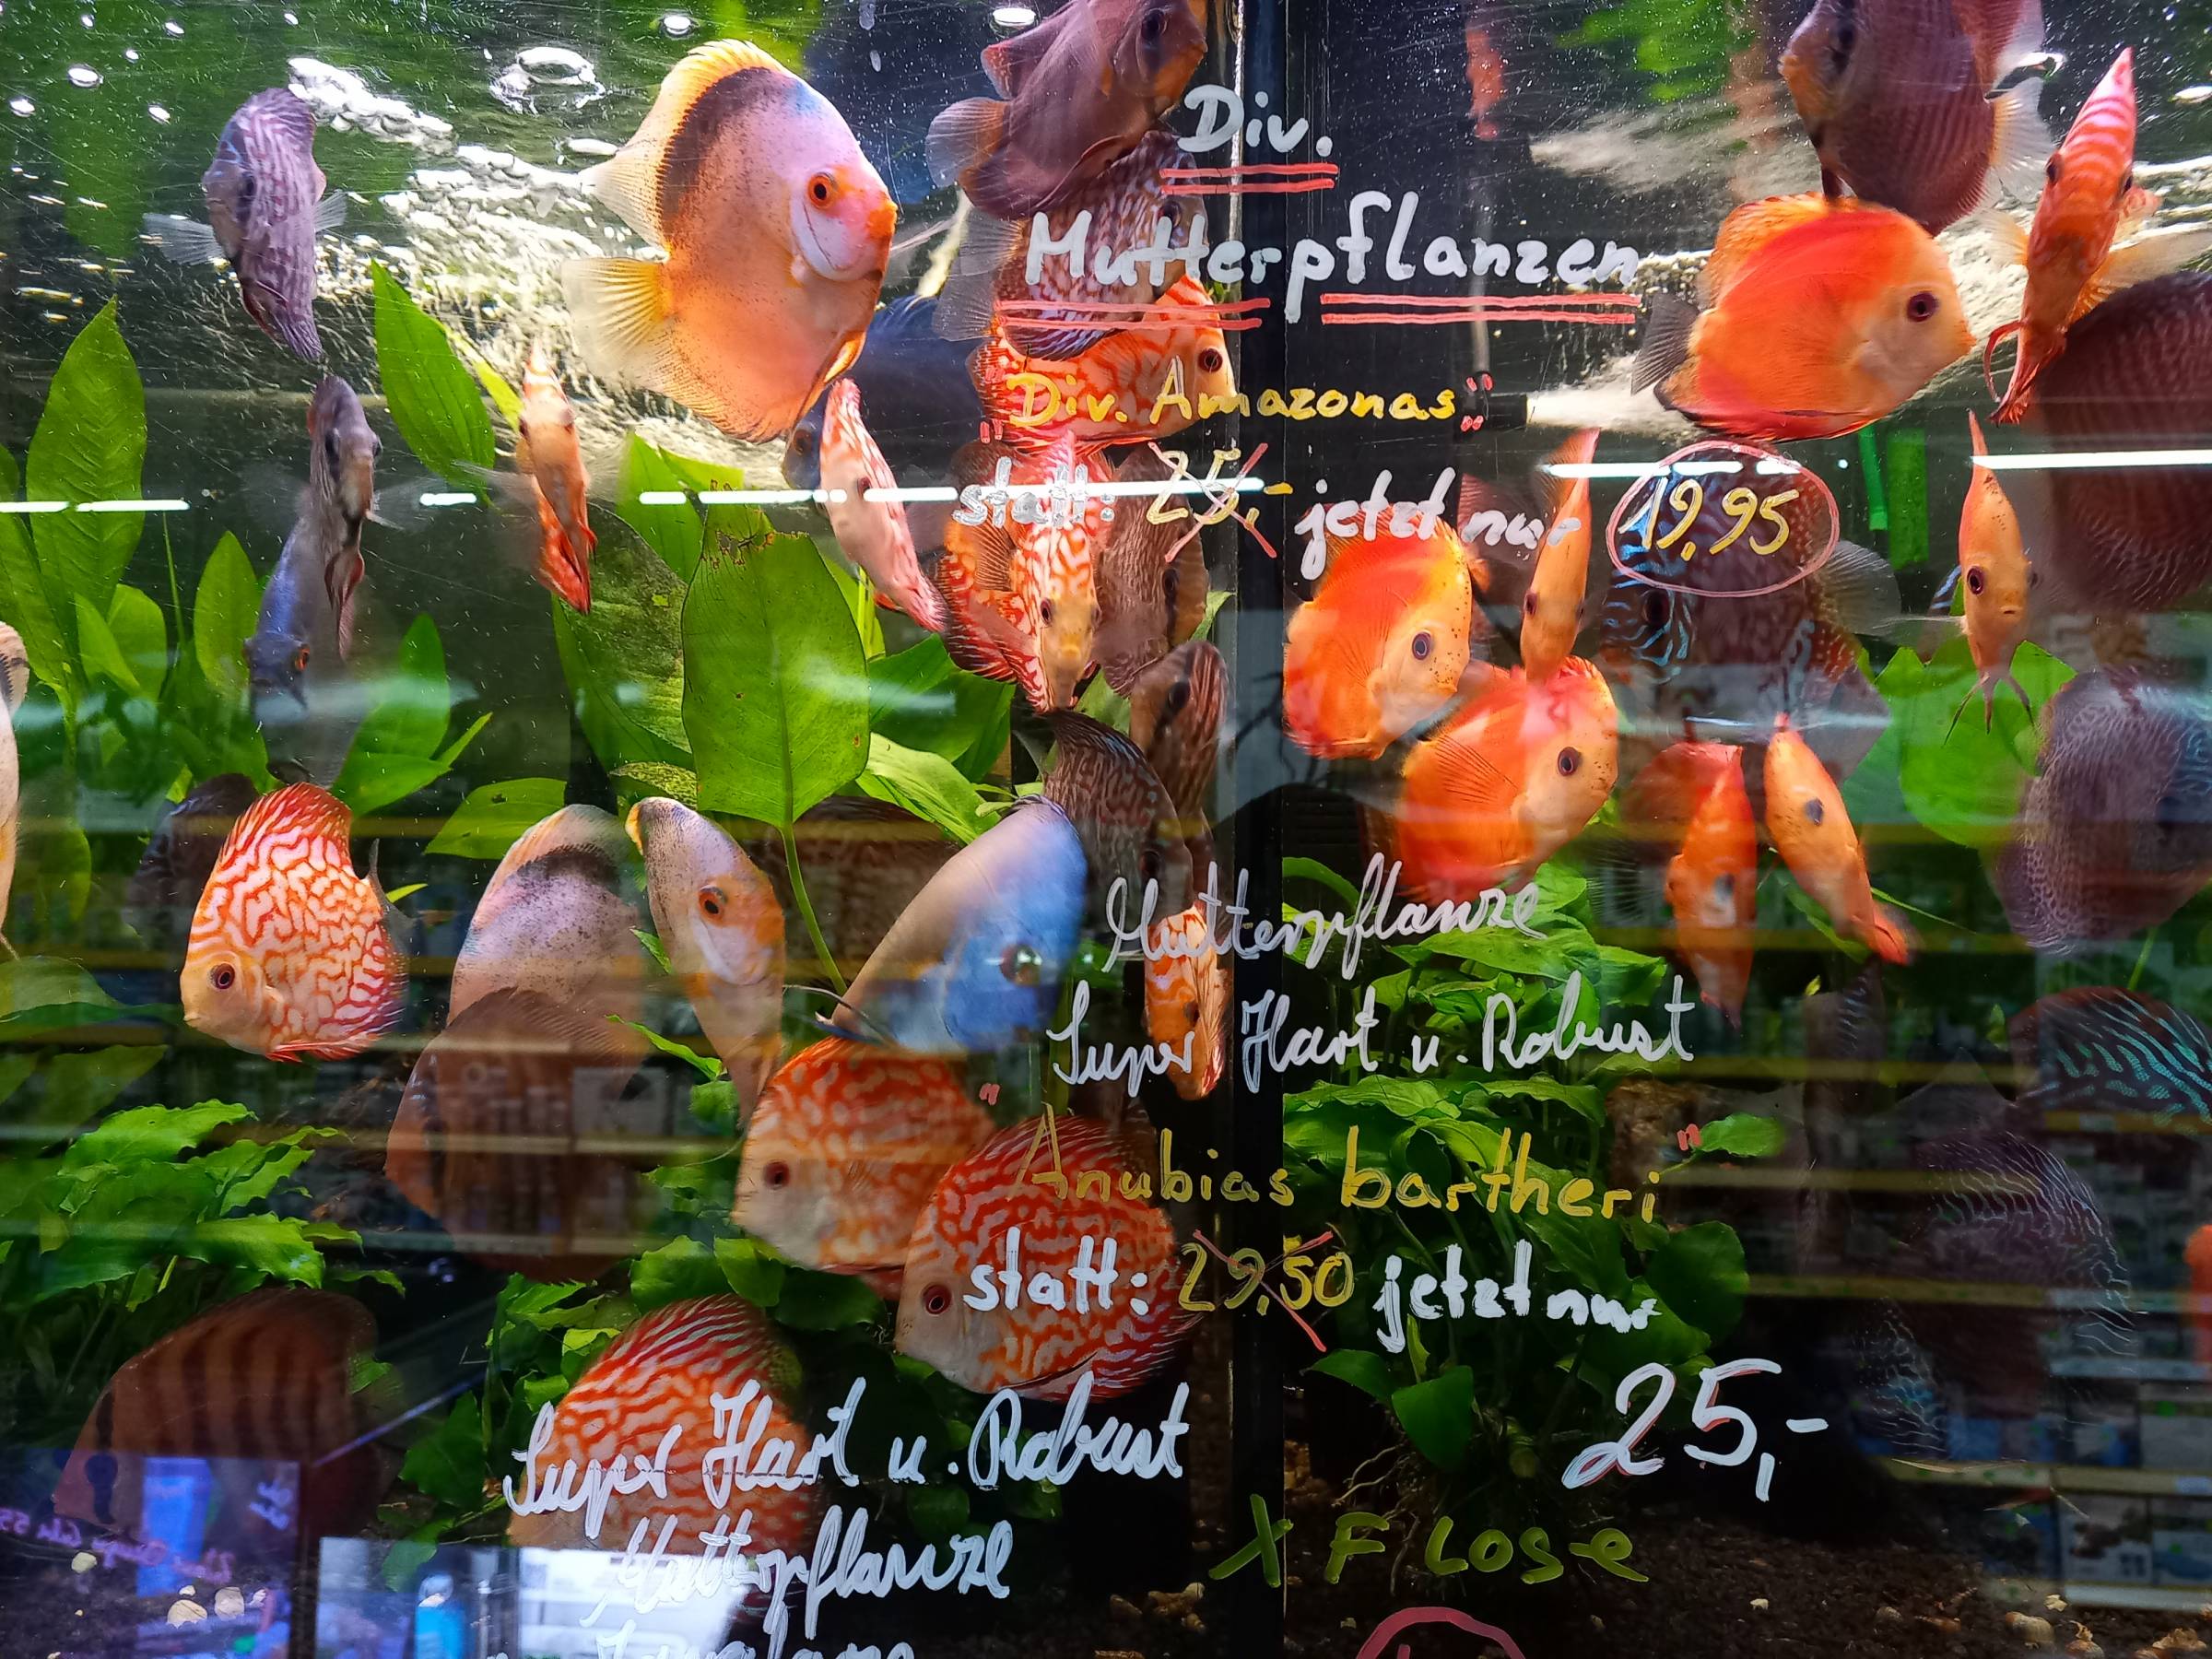 Div.
Mutterpflanzen
"Div. Amazonas"
statt: 25,- jetzt nur 19,95
Mutterpflanze
Super Hart u. Robust
"Anubias bartheri"
statt: 29,50 jetzt nur
25,-
Super Hart u. Robust
Mutterpflanze
X F LOSE